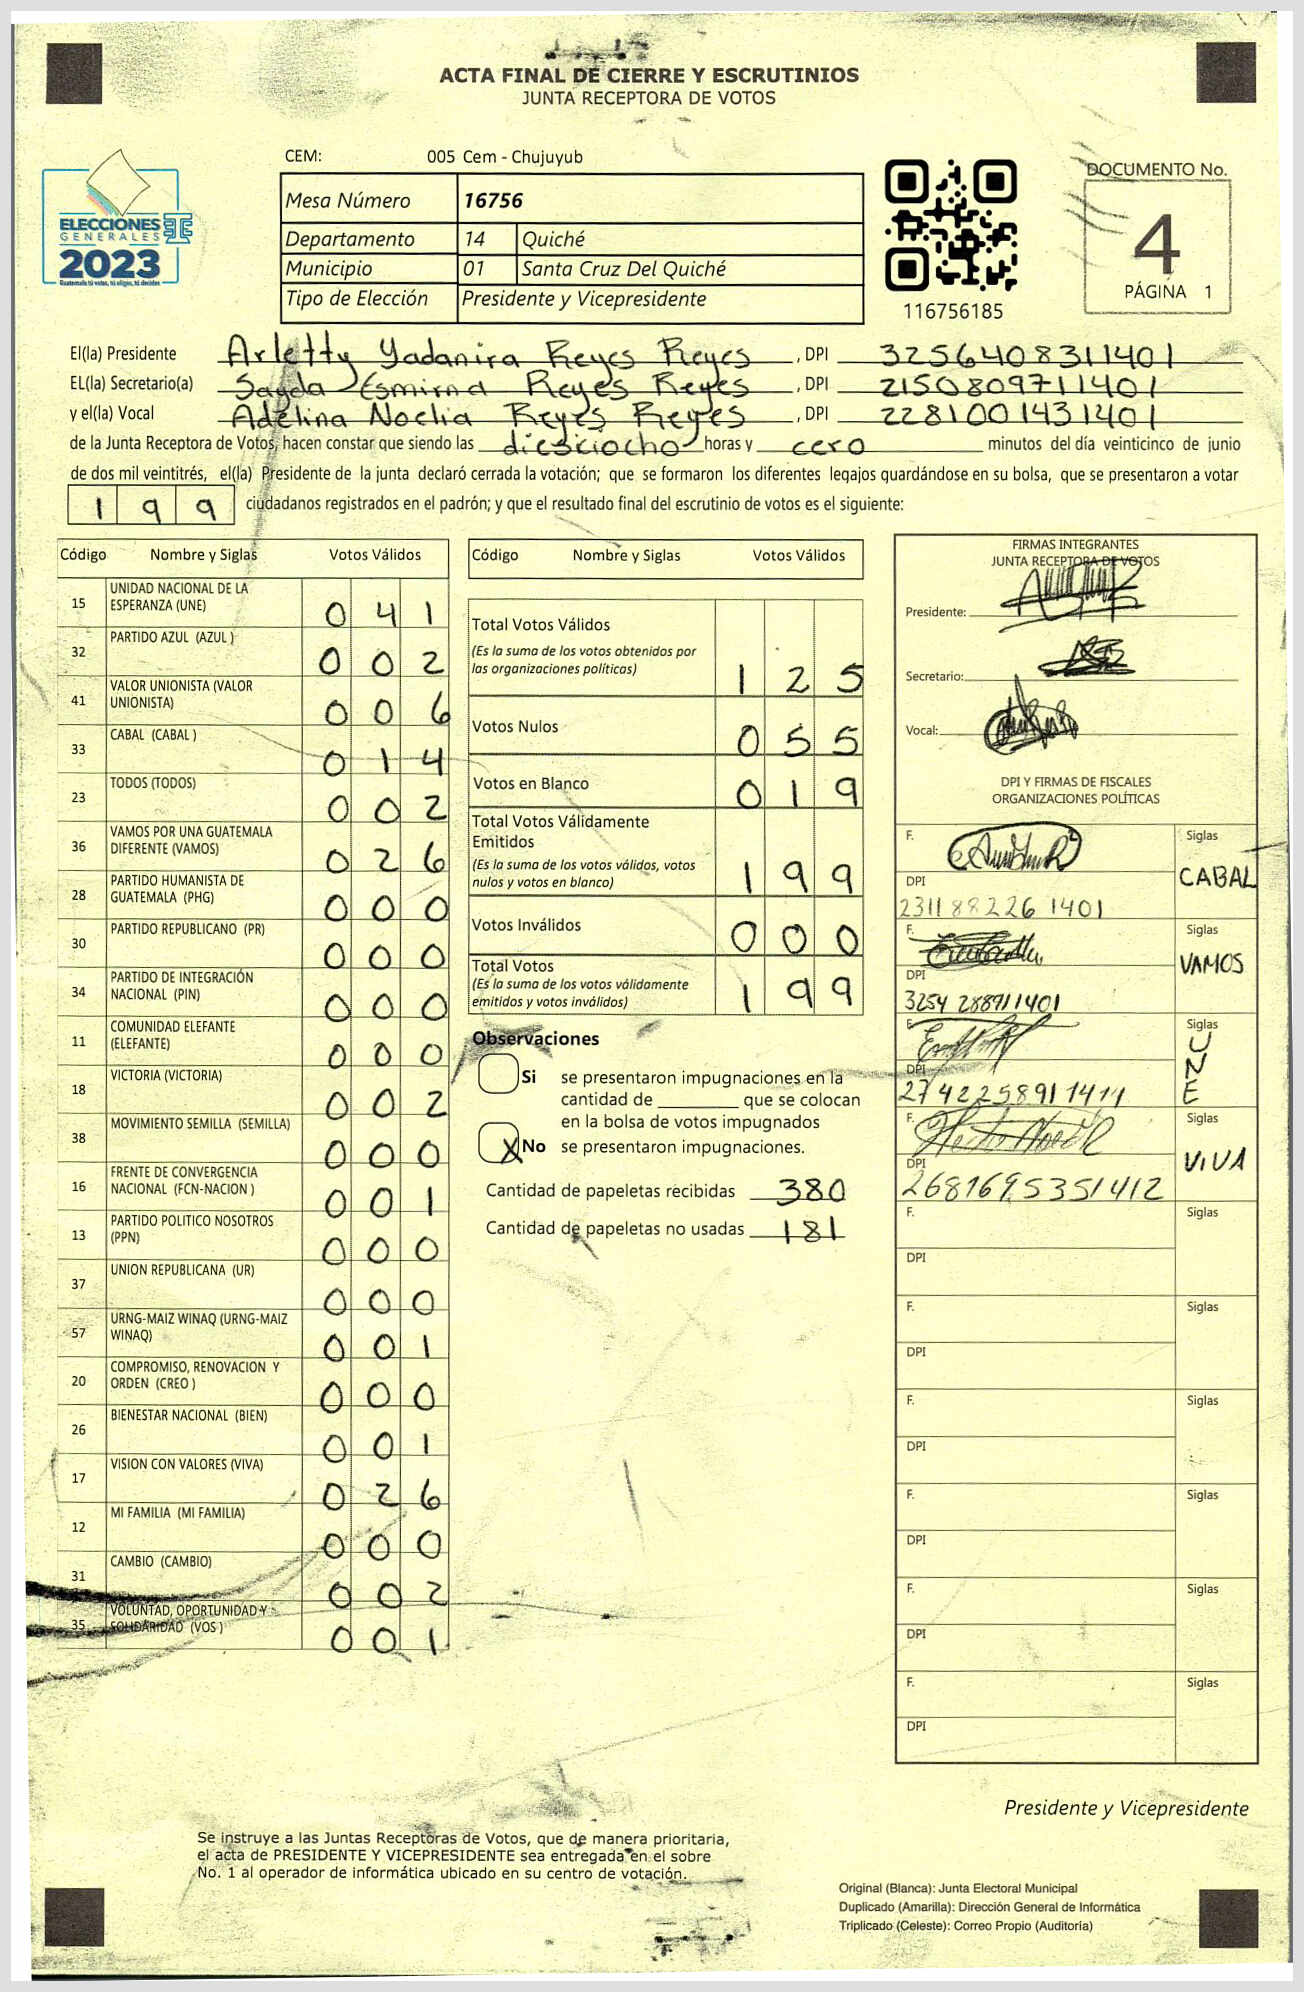 ACTA FINAL DE CIERRE Y ESCRUTINIOS
JUNTA RECEPTORA DE VOTOS
ELECCIONES
GENERALES
2023
Guatemala tú votas, tú eliges, tú decides
CEM: 005 Cem - Chujuyub
Mesa Número 16756
Departamento 14 Quiché
Municipio 01 Santa Cruz Del Quiché
Tipo de Elección Presidente y Vicepresidente
116756185
DOCUMENTO No.
4
PÁGINA 1
El(la) Presidente Arletty Yadanira Reyes Reyes , DPI 3256408311401
EL(la) Secretario(a) Sayda Esmirna Reyes Reyes , DPI 2150809711401
y el(la) Vocal Adelina Noelia Reyes Reyes , DPI 2281001431401
de la Junta Receptora de Votos, hacen constar que siendo las diesciocho horas y cero minutos del día veinticinco de junio
de dos mil veintitrés, el(la) Presidente de la junta declaró cerrada la votación; que se formaron los diferentes legajos guardándose en su bolsa, que se presentaron a votar
199 ciudadanos registrados en el padrón; y que el resultado final del escrutinio de votos es el siguiente:
Código Nombre y Siglas Votos Válidos
15 UNIDAD NACIONAL DE LA ESPERANZA (UNE) 041
32 PARTIDO AZUL (AZUL ) 002
41 VALOR UNIONISTA (VALOR UNIONISTA) 006
33 CABAL (CABAL ) 014
23 TODOS (TODOS) 002
36 VAMOS POR UNA GUATEMALA DIFERENTE (VAMOS) 026
28 PARTIDO HUMANISTA DE GUATEMALA (PHG) 000
30 PARTIDO REPUBLICANO (PR) 000
34 PARTIDO DE INTEGRACIÓN NACIONAL (PIN) 000
11 COMUNIDAD ELEFANTE (ELEFANTE) 000
18 VICTORIA (VICTORIA) 002
38 MOVIMIENTO SEMILLA (SEMILLA) 000
16 FRENTE DE CONVERGENCIA NACIONAL (FCN-NACION ) 001
13 PARTIDO POLITICO NOSOTROS (PPN) 000
37 UNION REPUBLICANA (UR) 000
57 URNG-MAIZ WINAQ (URNG-MAIZ WINAQ) 001
20 COMPROMISO, RENOVACION Y ORDEN (CREO ) 000
26 BIENESTAR NACIONAL (BIEN) 001
17 VISION CON VALORES (VIVA) 026
12 MI FAMILIA (MI FAMILIA) 000
31 CAMBIO (CAMBIO) 002
35 VOLUNTAD, OPORTUNIDAD Y SOLIDARIDAD (VOS ) 001
Código Nombre y Siglas Votos Válidos
Total Votos Válidos 125
(Es la suma de los votos obtenidos por
las organizaciones políticas)
Votos Nulos 055
Votos en Blanco 019
Total Votos Válidamente
Emitidos
(Es la suma de los votos válidos, votos
nulos y votos en blanco) 199
Votos Inválidos 000
Total Votos
(Es la suma de los votos válidamente
emitidos y votos inválidos) 199
Observaciones
Si se presentaron impugnaciones en la
cantidad de ________ que se colocan
en la bolsa de votos impugnados
X No se presentaron impugnaciones.
Cantidad de papeletas recibidas 380
Cantidad de papeletas no usadas 181
FIRMAS INTEGRANTES
JUNTA RECEPTORA DE VOTOS
Presidente:
Secretario:
Vocal:
DPI Y FIRMAS DE FISCALES
ORGANIZACIONES POLÍTICAS
F. Siglas
CABAL
DPI
231188226 1401
F. Siglas
VAMOS
DPI
3254 288911401
F. Siglas
UNE
DPI
2742258911411
F. Siglas
VIVA
DPI
2681695351412
F. Siglas
DPI
F. Siglas
DPI
F. Siglas
DPI
F. Siglas
DPI
F. Siglas
DPI
F. Siglas
DPI
Presidente y Vicepresidente
Se instruye a las Juntas Receptoras de Votos, que de manera prioritaria,
el acta de PRESIDENTE Y VICEPRESIDENTE sea entregada en el sobre
No. 1 al operador de informática ubicado en su centro de votación.
Original (Blanca): Junta Electoral Municipal
Duplicado (Amarilla): Dirección General de Informática
Triplicado (Celeste): Correo Propio (Auditoría)